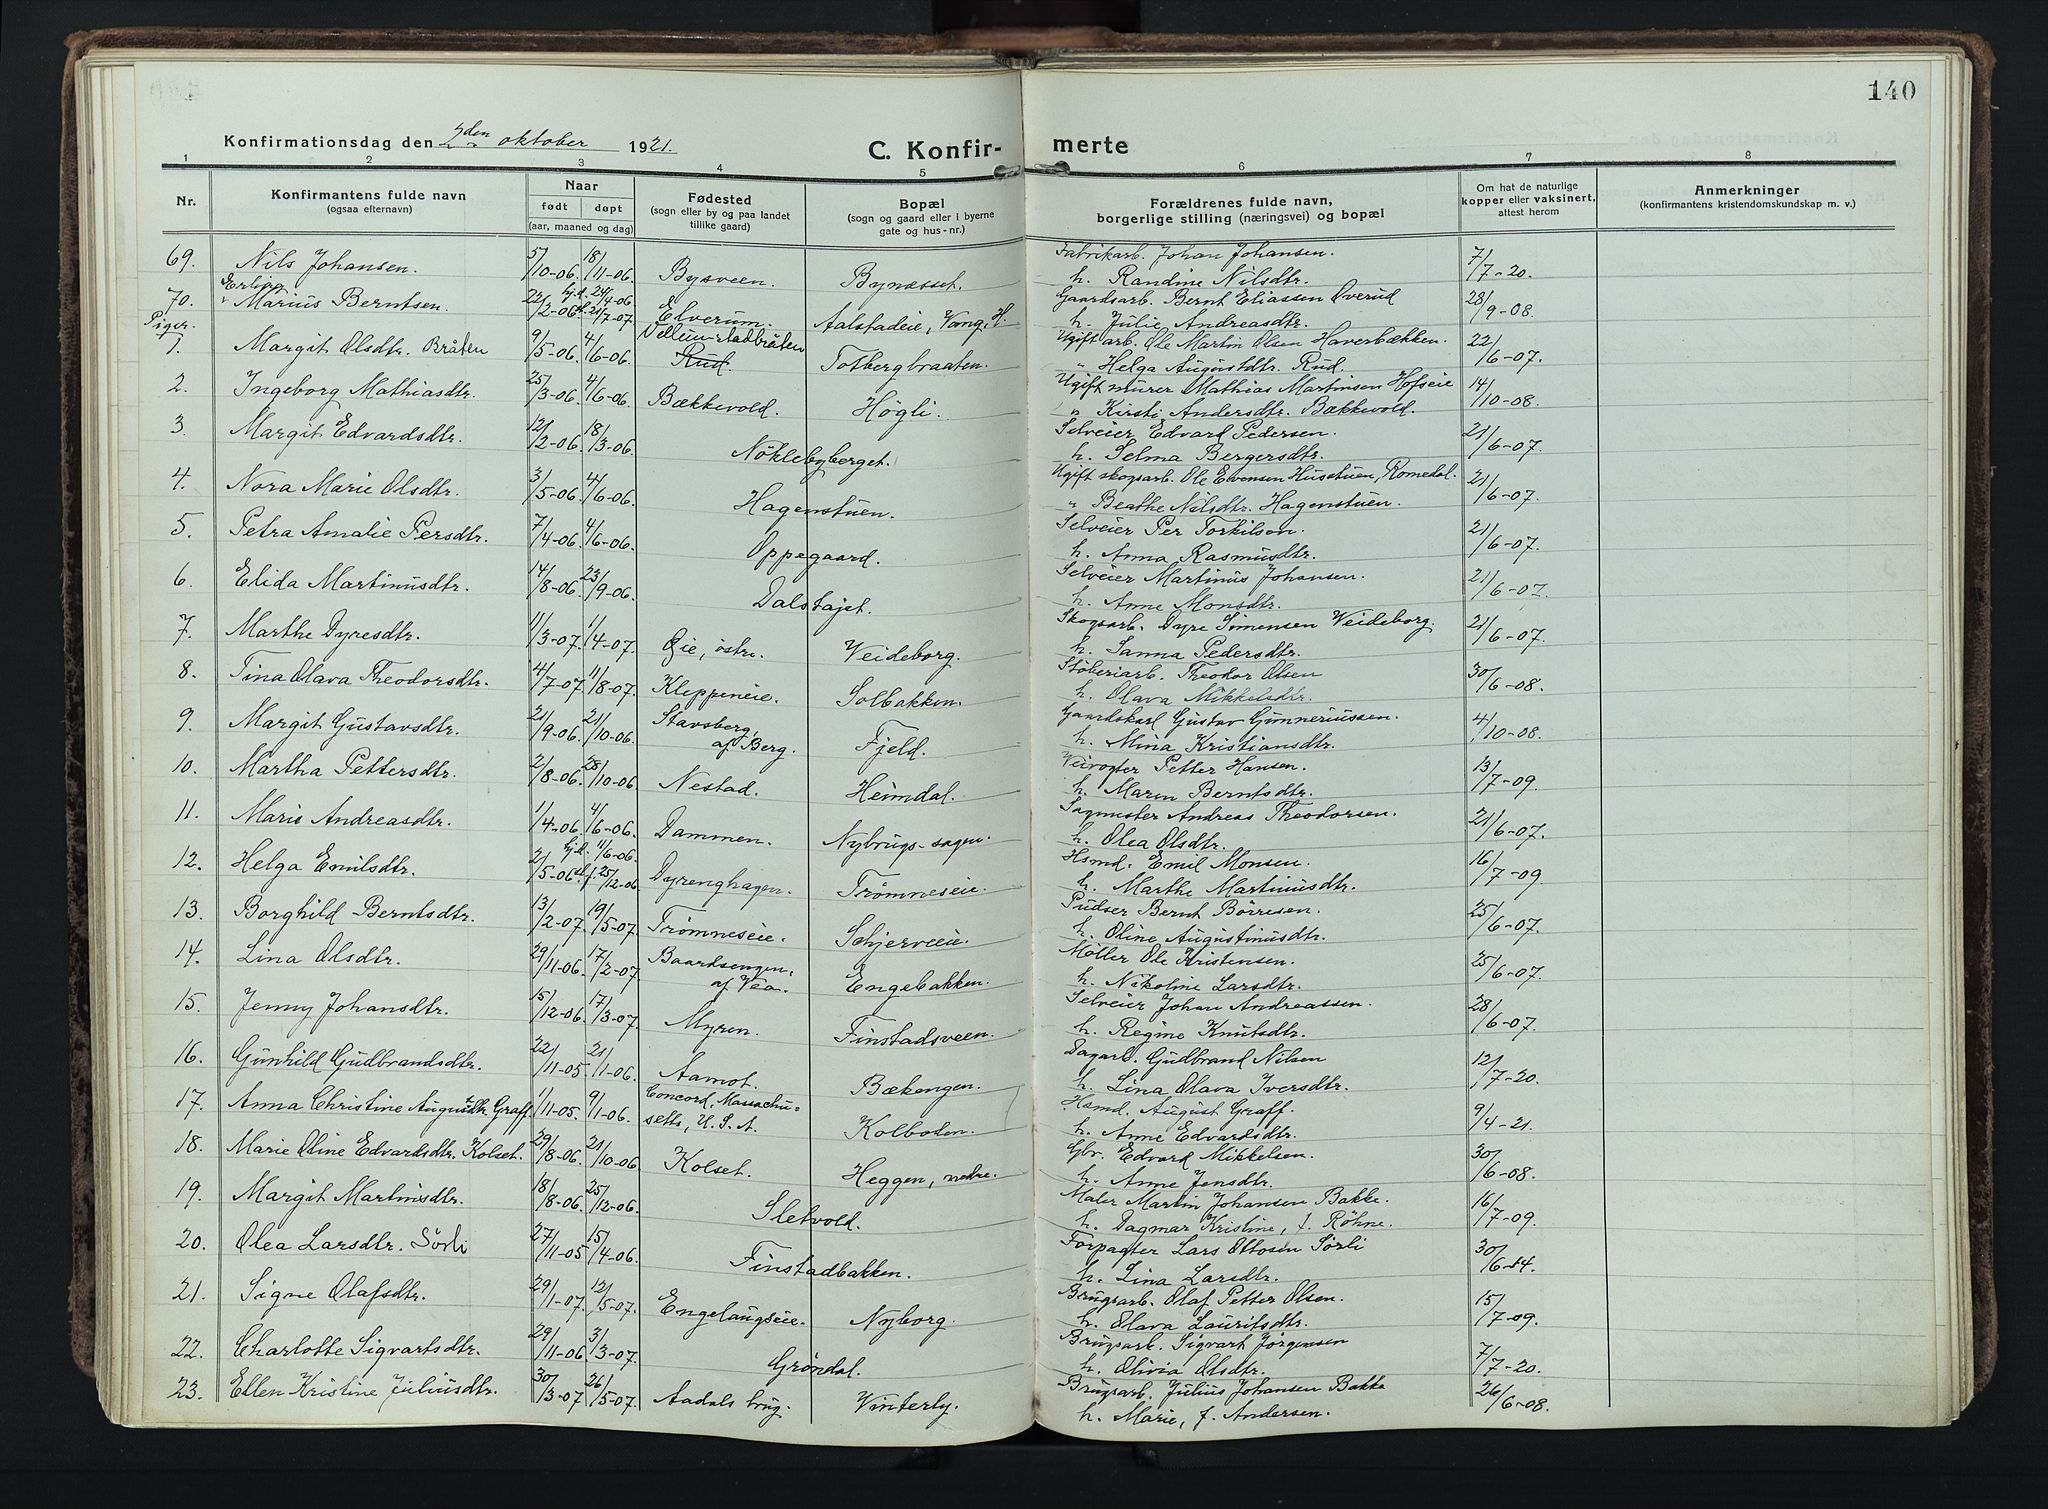 140
Konfirmationsdag den 2den oktober 1921.
C. Konfirmerte
1 2 3 4 5 6 7 8
Nr. | Konfirmantens fulde navn (ogsaa efternavn) | Naar født døpt (aar, maaned og dag) | Fødested (sogn eller by og paa landet tillike gaard) | Bopæl (sogn og gaard eller i byerne gate og hus-nr.) | Forældrenes fulde navn, borgerlige stilling (næringsvei) og bopæl | Om hat de naturlige kopper eller vaksinert, attest herom | Anmerkninger (konfirmantens kristendomskundskap m. v.)
69. Nils Johansen. 5/10-06. 18/11-06. Bysveen. Bynæsset. Fabrikarb. Johan Johansen. 7/7-20.
h. Randine Nilsdtr.
70. Erling Marius Berntsen. 22/2-06. hj.d. 24/4-06. 21/7-07. Elverum. Aalstadeie, Vang, H. Gaardsarb. Bernt Eliassen Overud 28/9-08.
h. Julie Andreasdtr.
Piger.
1. Margit Olsdtr. Bråten 9/5-06. 4/6-06. Rud. Totbergbraaten. Ugift arb. Ole Martin Olsen Haverbækken. 22/6-07.
" Helga Augustdtr. Rud.
2. Ingeborg Mathiasdtr. 25/3-06. 4/6-06. Bækkevold. Høgli. Ugift murer Mathias Martinsen Hofseie 14/10-08.
" Kirsti Andersdtr. Bækkevold.
3. Margit Edvardsdtr. 12/2-06. 18/3-06. Nøklebyberget. Selveier Edvard Pedersen. 21/6-07.
h. Selma Bergersdtr.
4. Nora Marie Olsdtr. 3/5-06. 4/6-06. Hagenstuen. Ugift skogsarb. Ole Evensen Husstuen, Romedal. 21/6-07.
" Beathe Nilsdtr. Hagenstuen.
5. Petra Amalie Persdtr. 7/4-06. 4/6-06. Oppegaard. Selveier Per Torkilson. 21/6-07.
h. Anna Rasmusdtr.
6. Elida Martinusdtr. 14/8-06. 23/9-06. Dalstøjet. Selveier Martinus Johansen. 21/6-07.
h. Anne Monsdtr.
7. Marthe Dyresdtr. 11/3-07. 1/4-07. Øie, østre. Veideborg. Skogsarb. Dyre Simensen Veideborg. 21/6-07.
h. Sanna Pedersdtr.
8. Tina Olava Theodorsdtr. 4/7-07. 11/8-07. Kleppeneie. Solbakken. Støberiarb. Theodor Olsen 30/6-08.
h. Olava Mikkelsdtr.
9. Margit Gustavsdtr. 21/9-06. 21/10-06. Stavsberg af Berg. Fjeld. Gaardskarl Gustav Gunneriussen. 4/10-08.
h. Mina Kristiansdtr.
10. Martha Pettersdtr. 2/8-06. 28/10-06. Nestad. Heimdal. Veivogter Petter Hansen. 13/7-09.
h. Maren Berntsdtr.
11. Marie Andreasdtr. 1/4-06. 4/6-06. Dammen. Nybrugs-sagen. Sagmester Andreas Theodorsen. 21/6-07.
h. Olea Olsdtr.
12. Helga Emilsdtr. 2/5-06. hj.d. 11/6-06. st.f. 25/12-06. Dyrenghagen. Trømneseie. Hsmd. Emil Monsen. 16/7-09.
h. Marthe Martinusdtr.
13. Borghild Berntsdtr. 13/2-07. 19/5-07. Trømneseie. Schjerveeie. Pudser Bernt Børresen. 25/6-07.
h. Oline Augustinusdtr.
14. Lina Olsdtr. 29/11-06. 17/2-07. Baardsengen af Vea. Engebakken. Møller Ole Kristensen. 25/6-07.
h. Nikoline Larsdtr.
15. Jenny Johansdtr. 15/12-06. 17/3-07. Myren. Finstadsveen. Selveier Johan Andreassen. 28/6-07.
h. Regine Knutsdtr.
16. Gunhild Gudbrandsdtr. 22/11-05. 21/1-06. Aamot. Bækengen. Dagarb. Gudbrand Nilsen 12/7-20.
h. Lina Olava Iversdtr.
17. Anna Christine Augustdtr. Graff. 1/11-05. 9/1-06. Concord, Massachusetts, U. S. A. Kolboten. Hsmd. August Graff. 9/4-21.
h. Anne Edvardsdtr.
18. Marie Oline Edvardsdtr. Kolset. 29/8-06. 21/10-06. Kolset. Heggen, nedre. Gbr. Edvard Mikkelsen. 30/6-08.
h. Anne Jensdtr.
19. Margit Martinsdtr. 18/8-06. 25/12-06. Sletvold. Maler Martin Johansen Bakke. 16/7-09.
h. Dagmar Kristine, f. Røhne.
20. Olea Larsdtr. Sørli 27/11-05. 15/4-06. Finstadbakken. Forpagter Lars Ottosen Sørli 30/6-14.
h. Lina Larsdtr.
21. Signe Olafsdtr. 29/1-07. 12/5-07. Engelaugseie. Nyborg. Brugsarb. Olaf Petter Olsen. 15/7-09.
h. Olava Lauritsdtr.
22. Charlotte Sigvartsdtr. 29/11-06. 3/3-07. Grøndal. Brugsarb. Sigvart Jørgensen 7/7-20.
h. Olivia Olsdtr.
23. Ellen Kristine Juliusdtr. 30/3-07. 26/5-07. Aadals brug. Vinterby. Brugsarb. Julius Johansen Bakke 26/6-08.
h. Marie, f. Andersen.